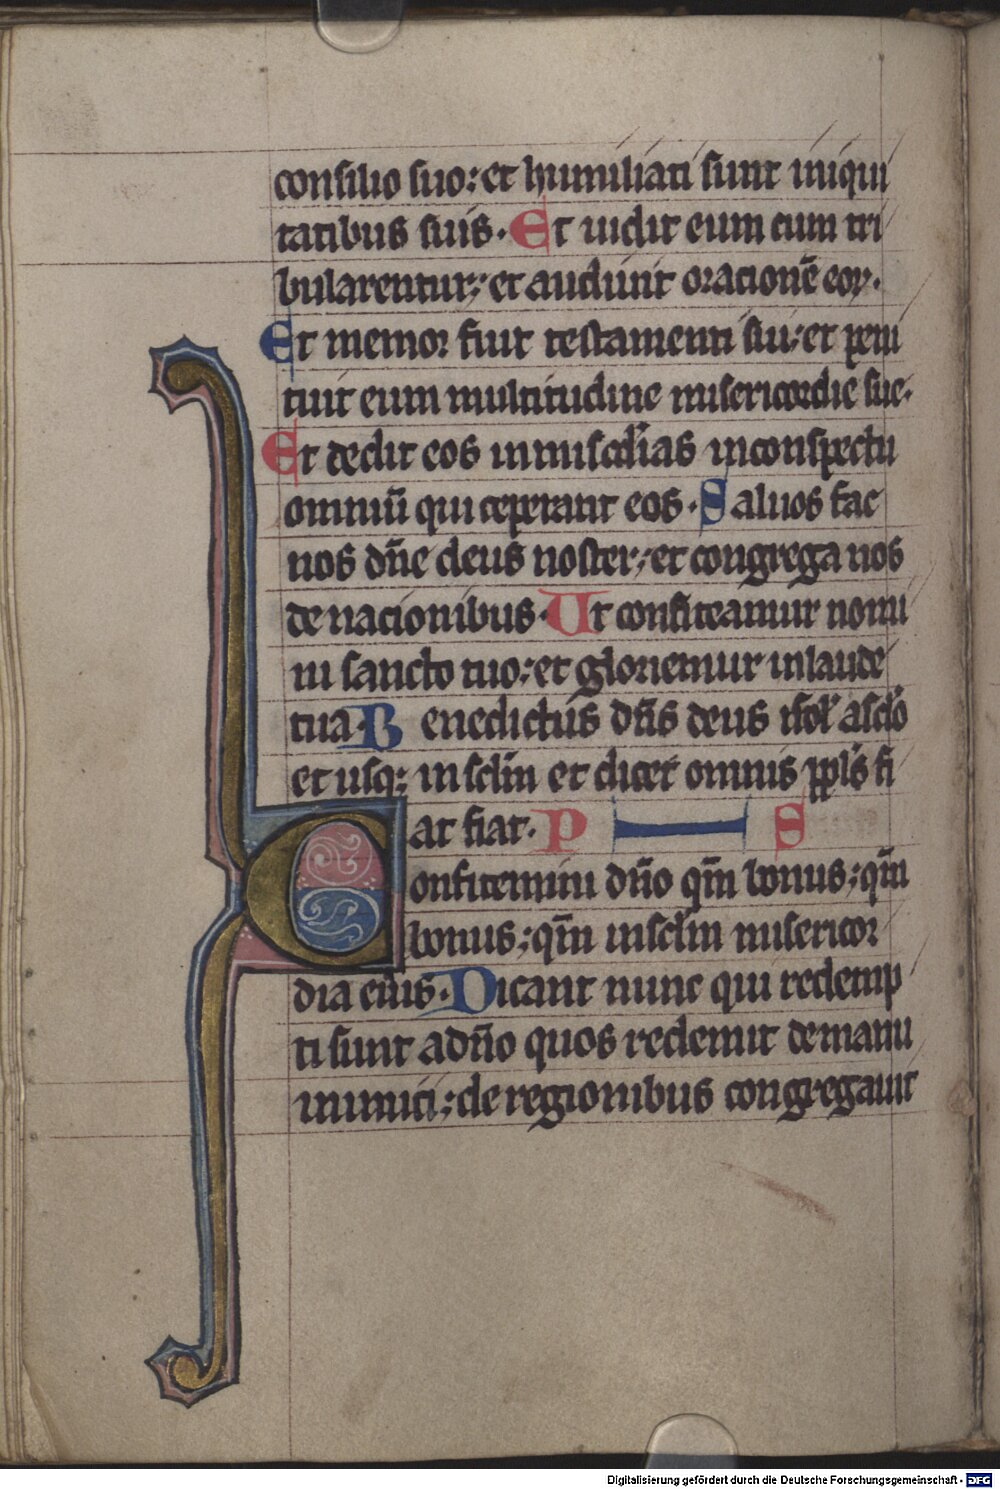 consilio suo: et humiliati sunt iniqui
tatibus suis. Et uidit eum cum tri
bularentur: et audiuit oracionē eoꝝ.
Et memor fuit testamenti sui: et peni
tuit eum multitudine misericordie sue.
Et dedit eos in mīscd̓ias in conspectu
omniū qui ceperant eos. Saluos fac
nos dn̄e deus noster: et congrega nos
de nacionibus. Ut confiteamur nomi
ni sancto tuo: et gloriemur in laude
tua. Benedictus dn̄s deus isr̄l a sclo
et usqꝫ in sclm̄ et dicet omnis ppl̓s fi
at fiat. P S
Confitemini dn̄o qm̄ bonus: qm̄
bonus: qm̄ in sclm̄ misericor
dia eius. Dicant nunc qui redemp
ti sunt a dn̄o quos redemit de manu
inimici: de regionibus congregauit
Digitalisierung gefördert durch die Deutsche Forschungsgemeinschaft - DFG